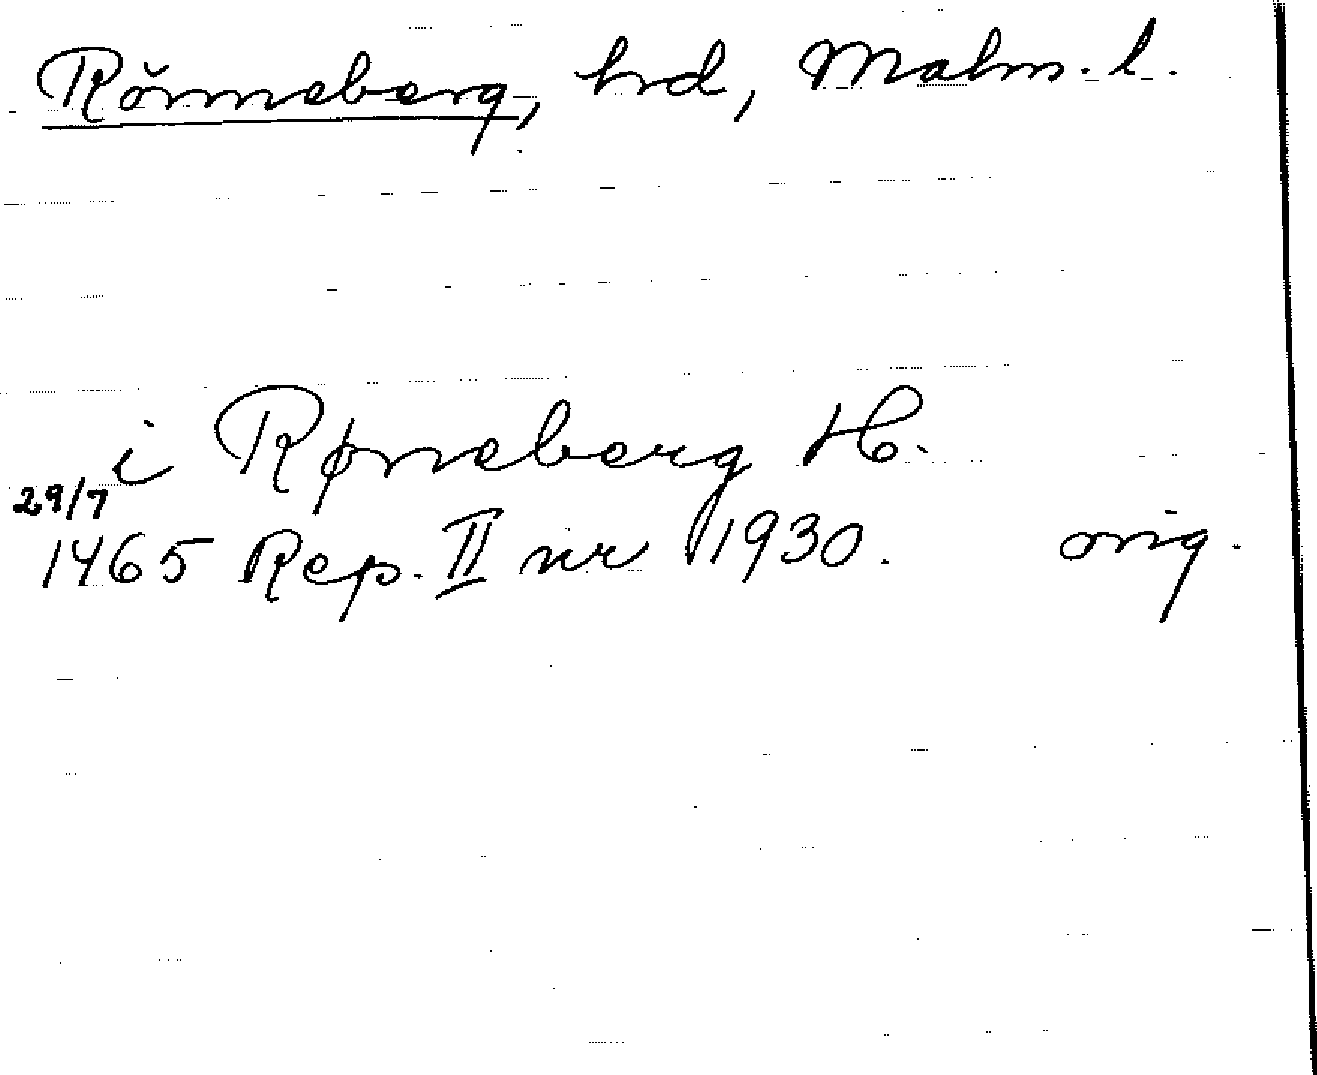 Rönneberg, hrd, Malm. l.
i Rønneberg H.
29/7
1465 Rep. II nr 1930. orig.